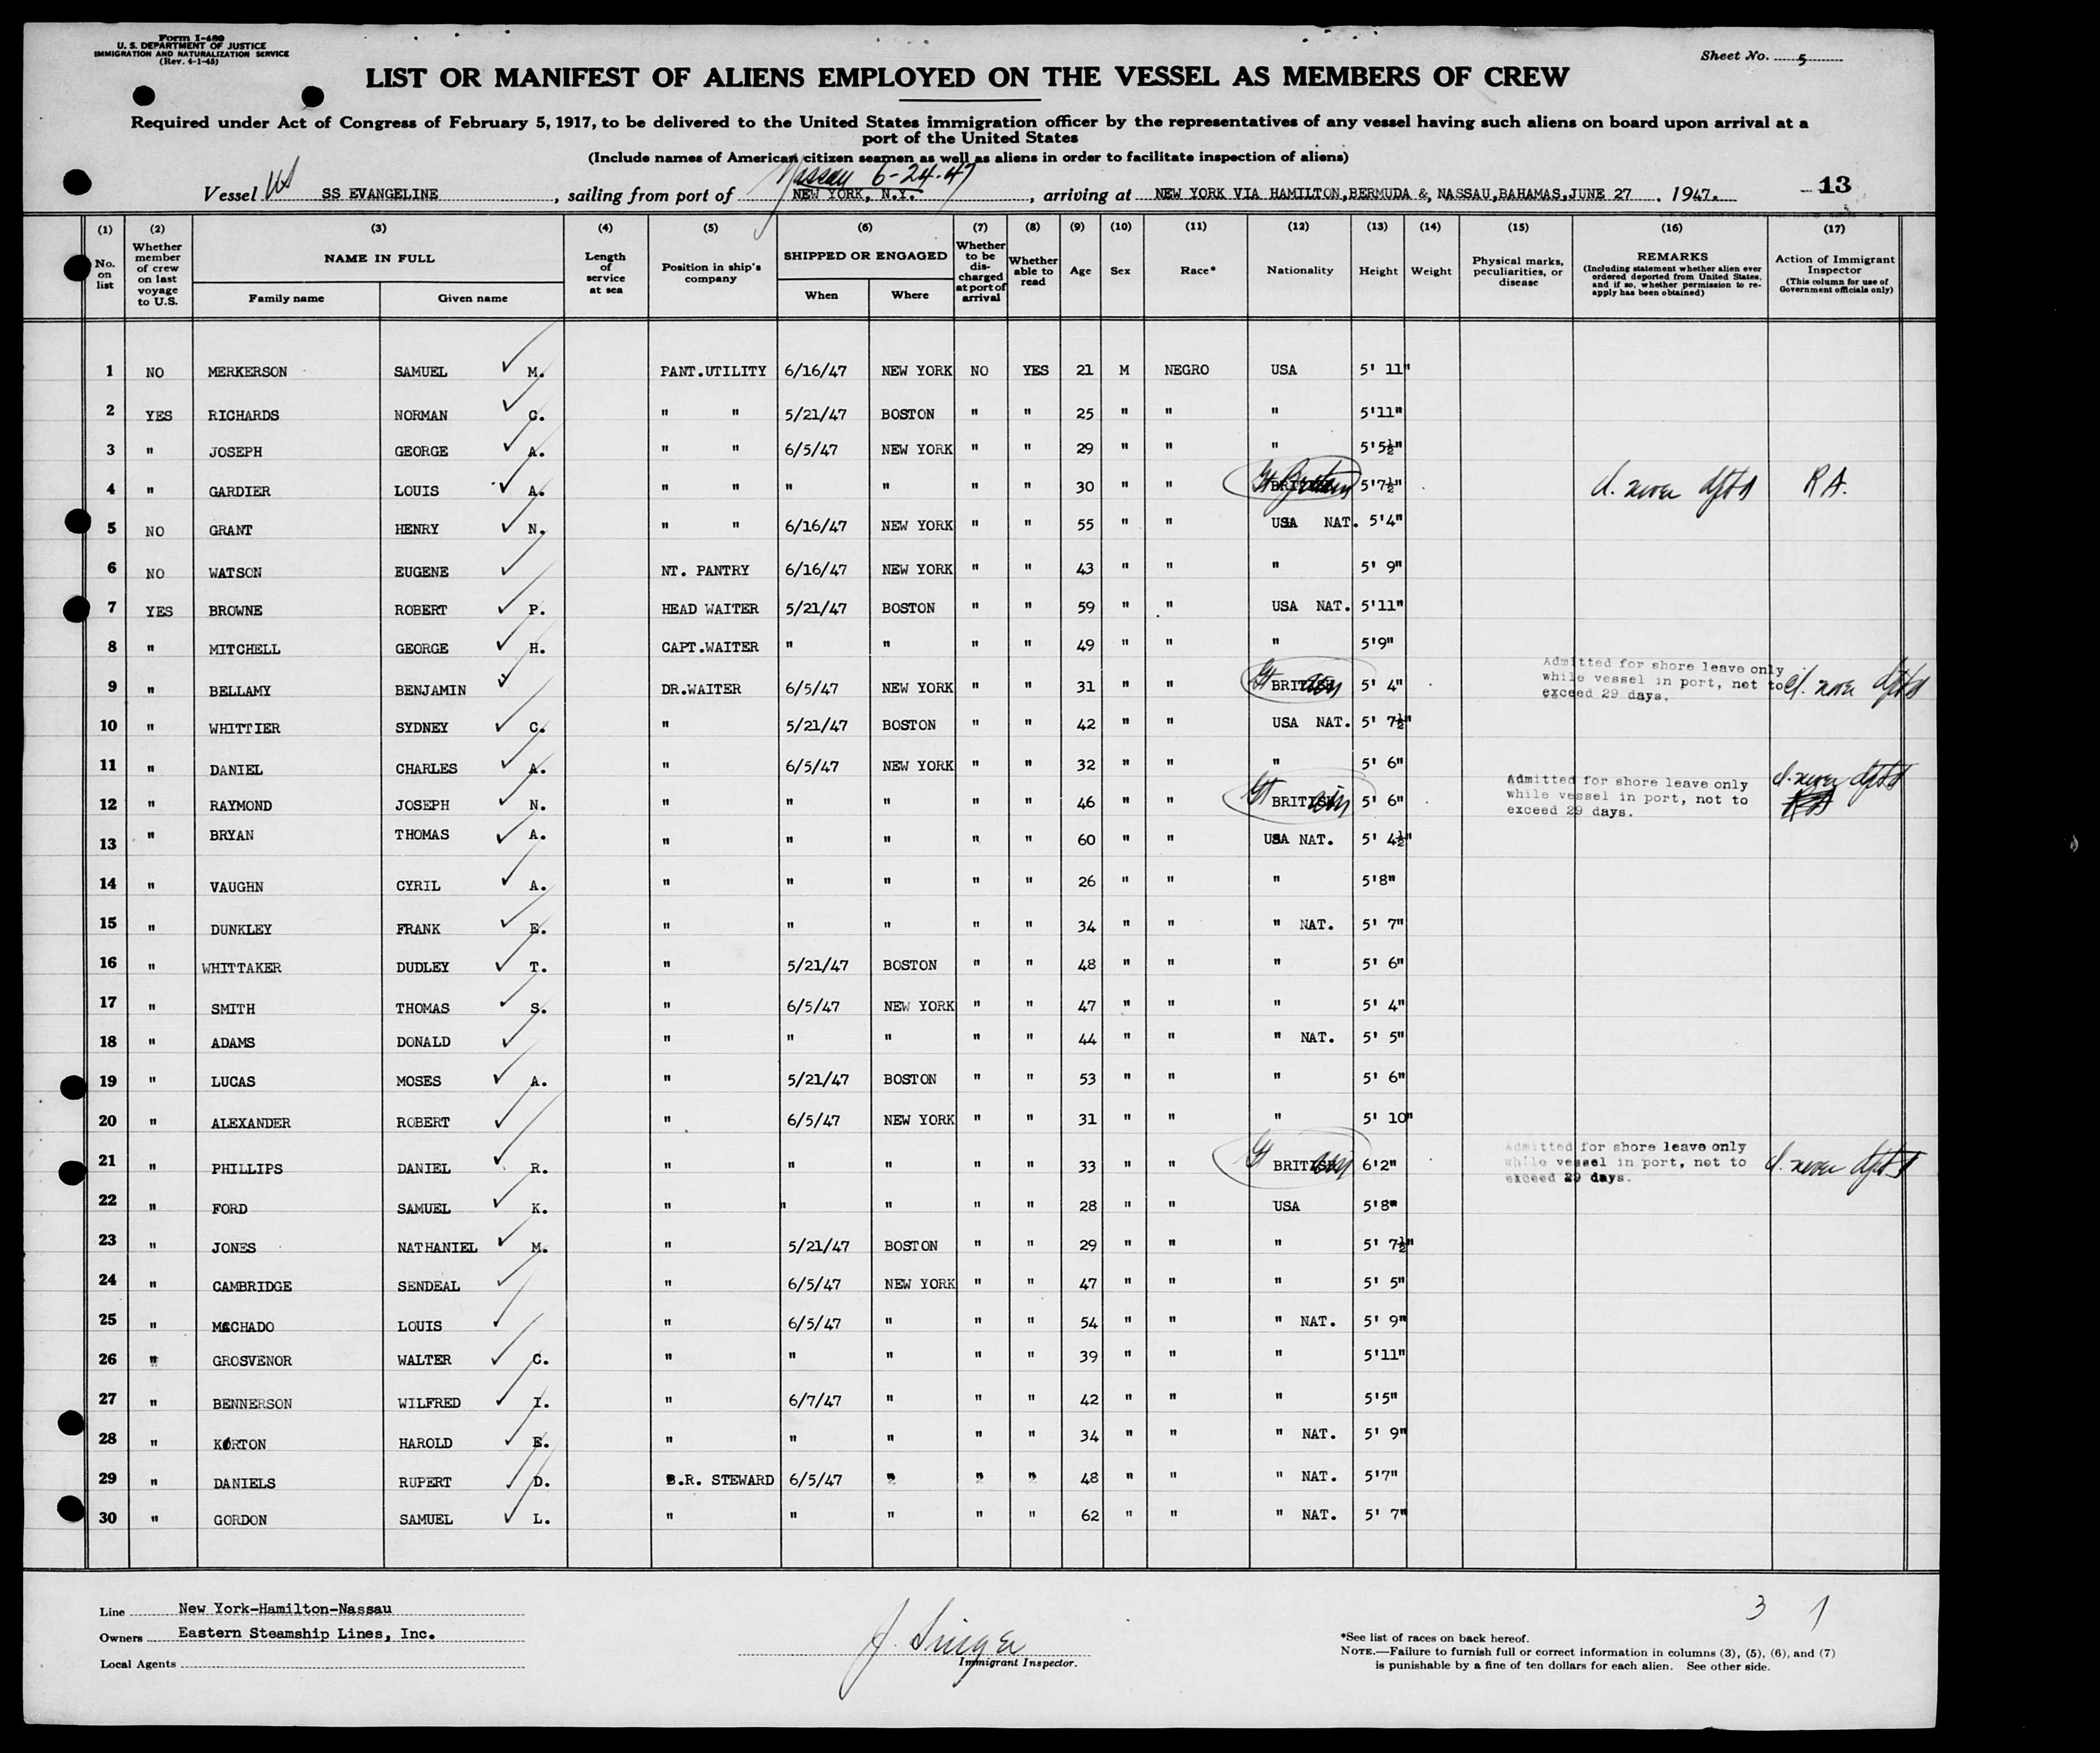 Form I-480
U. S. DEPARTMENT OF JUSTICE
IMMIGRATION AND NATURALIZATION SERVICE
(Rev. 4-1-45)
Sheet No. 5
LIST OR MANIFEST OF ALIENS EMPLOYED ON THE VESSEL AS MEMBERS OF CREW
Required under Act of Congress of February 5, 1917, to be delivered to the United States immigration officer by the representatives of any vessel having such aliens on board upon arrival at a
port of the United States
(Include names of American citizen seamen as well as aliens in order to facilitate inspection of aliens)
Nassau 6-24-47
Vessel US SS EVANGELINE, sailing from port of NEW YORK, N.Y., arriving at NEW YORK VIA HAMILTON, BERMUDA &, NASSAU, BAHAMAS, JUNE 27. 1947. 13
(1) (2) (3) (4) (5) (6) (7) (8) (9) (10) (11) (12) (13) (14) (15) (16) (17)
No. on list
Whether member of crew on last voyage to U.S.
NAME IN FULL
Family name
Given name
Length of service at sea
Position in ship's company
SHIPPED OR ENGAGED
When
Where
Whether to be discharged at port of arrival
Whether able to read
Age
Sex
Race*
Nationality
Height
Weight
Physical marks, peculiarities, or disease
REMARKS
(Including statement whether alien ever ordered deported from United States, and if so, whether permission to re-apply has been obtained)
Action of Immigrant Inspector
(This column for use of Government officials only)
1 NO MERKERSON SAMUEL M. PANT.UTILITY 6/16/47 NEW YORK NO YES 21 M NEGRO USA 5' 11"
2 YES RICHARDS NORMAN C. " " 5/21/47 BOSTON " " 25 " " " 5'11"
3 " JOSEPH GEORGE A. " " 6/5/47 NEW YORK " " 29 " " " 5'5½"
4 " GARDIER LOUIS A. " " " " " " 30 " " Gt Britain 5'7½" never dptd R A.
5 NO GRANT HENRY N. " " 6/16/47 NEW YORK " " 55 " " USA NAT. 5'4"
6 NO WATSON EUGENE NT. PANTRY 6/16/47 NEW YORK " " 43 " " " 5' 9"
7 YES BROWNE ROBERT P. HEAD WAITER 5/21/47 BOSTON " " 59 " " USA NAT. 5'11"
8 " MITCHELL GEORGE H. CAPT.WAITER " " " " 49 " " " 5'9"
9 " BELLAMY BENJAMIN DR.WAITER 6/5/47 NEW YORK " " 31 " " Gt BRITISH 5' 4" Admitted for shore leave only while vessel in port, not to exceed 29 days. never dptd
10 " WHITTIER SYDNEY C. " 5/21/47 BOSTON " " 42 " " USA NAT. 5' 7½"
11 " DANIEL CHARLES A. " 6/5/47 NEW YORK " " 32 " " " 5' 6"
12 " RAYMOND JOSEPH N. " " " " " 46 " " Gt BRITISH 5' 6" Admitted for shore leave only while vessel in port, not to exceed 29 days. never dptd
13 " BRYAN THOMAS A. " " " " " 60 " " USA NAT. 5' 4½"
14 " VAUGHN CYRIL A. " " " " " 26 " " " 5'8"
15 " DUNKLEY FRANK E. " " " " " 34 " " " NAT. 5' 7"
16 " WHITTAKER DUDLEY T. " 5/21/47 BOSTON " " 48 " " " 5' 6"
17 " SMITH THOMAS S. " 6/5/47 NEW YORK " " 47 " " " 5' 4"
18 " ADAMS DONALD " " " " " 44 " " " NAT. 5' 5"
19 " LUCAS MOSES A. " 5/21/47 BOSTON " " 53 " " " 5' 6"
20 " ALEXANDER ROBERT " 6/5/47 NEW YORK " " 31 " " " 5' 10"
21 " PHILLIPS DANIEL R. " " " " " 33 " " Gt BRITISH 6'2" Admitted for shore leave only while vessel in port, not to exceed 29 days. never dptd
22 " FORD SAMUEL K. " " " " " 28 " " USA 5'8"
23 " JONES NATHANIEL M. " 5/21/47 BOSTON " " 29 " " " 5' 7½"
24 " CAMBRIDGE SENDEAL " 6/5/47 NEW YORK " " 47 " " " 5' 5"
25 " MACHADO LOUIS " 6/5/47 " " " 54 " " " NAT. 5' 9"
26 " GROSVENOR WALTER C. " " " " " 39 " " " 5'11"
27 " BENNERSON WILFRED I. " 6/7/47 " " " 42 " " " 5'5"
28 " KORTON HAROLD E. " " " " " 34 " " " NAT. 5' 9"
29 " DANIELS RUPERT D. B.R. STEWARD 6/5/47 " " " 48 " " " NAT. 5'7"
30 " GORDON SAMUEL L. " " " " " 62 " " " NAT. 5' 7"
3 1
Line New York-Hamilton-Nassau
Owners Eastern Steamship Lines, Inc.
Local Agents
J. Singer
Immigrant Inspector.
*See list of races on back hereof.
NOTE.—Failure to furnish full or correct information in columns (3), (5), (6), and (7)
is punishable by a fine of ten dollars for each alien. See other side.